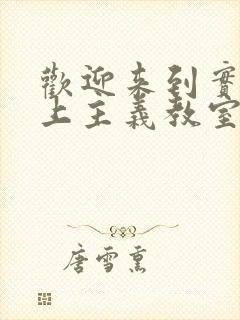 歡迎來到實
上主義教室
唐雪熏